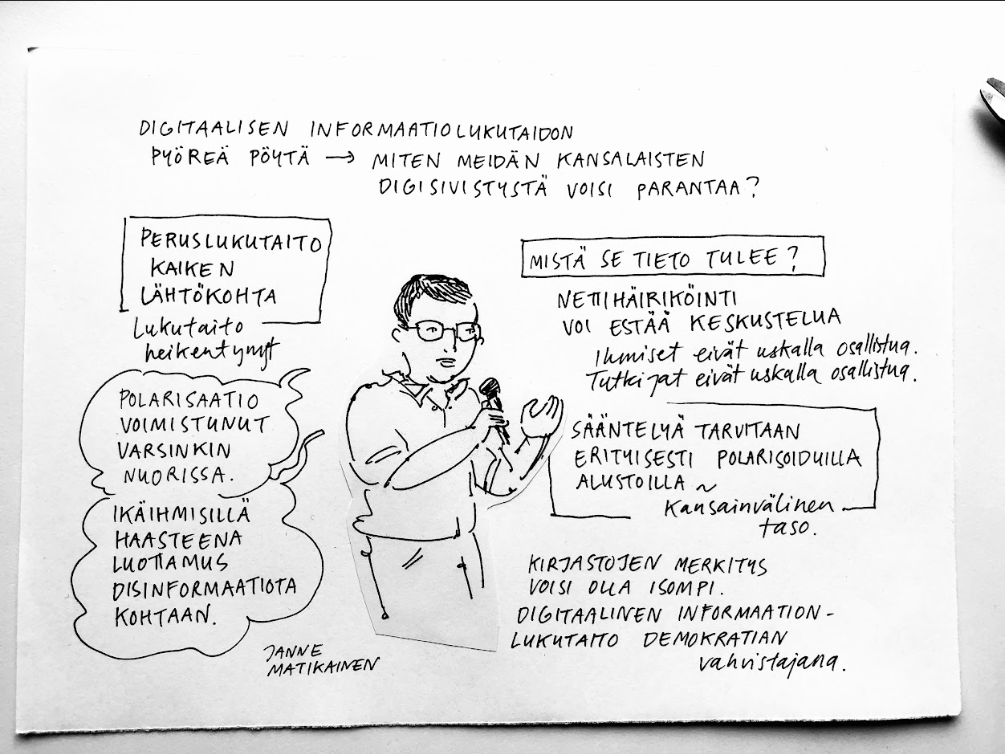 DIGITAALISEN INFORMAATIOLUKUTAIDON
PYÖREÄ PÖYTÄ → MITEN MEIDÄN KANSALAISTEN
DIGISIVISTYSTÄ VOISI PARANTAA?
PERUSLUKUTAITO
KAIKEN
LÄHTÖKOHTA
Lukutaito
heikentynyt
POLARISAATIO
VOIMISTUNUT
VARSINKIN
NUORISSA.
IKÄIHMISILLÄ
HAASTEENA
LUOTTAMUS
DISINFORMAATIOTA
KOHTAAN.
JANNE
MATIKAINEN
MISTÄ SE TIETO TULEE?
NETTIHÄIRIKÖINTI
VOI ESTÄÄ KESKUSTELUA
Ihmiset eivät uskalla osallistua.
Tutkijat eivät uskalla osallistua.
SÄÄNTELYÄ TARVITAAN
ERITYISESTI POLARISOIDUILLA
ALUSTOILLA ~
Kansainvälinen
taso.
KIRJASTOJEN MERKITYS
VOISI OLLA ISOMPI.
DIGITAALINEN INFORMAATION-
LUKUTAITO DEMOKRATIAN
vahvistajana.